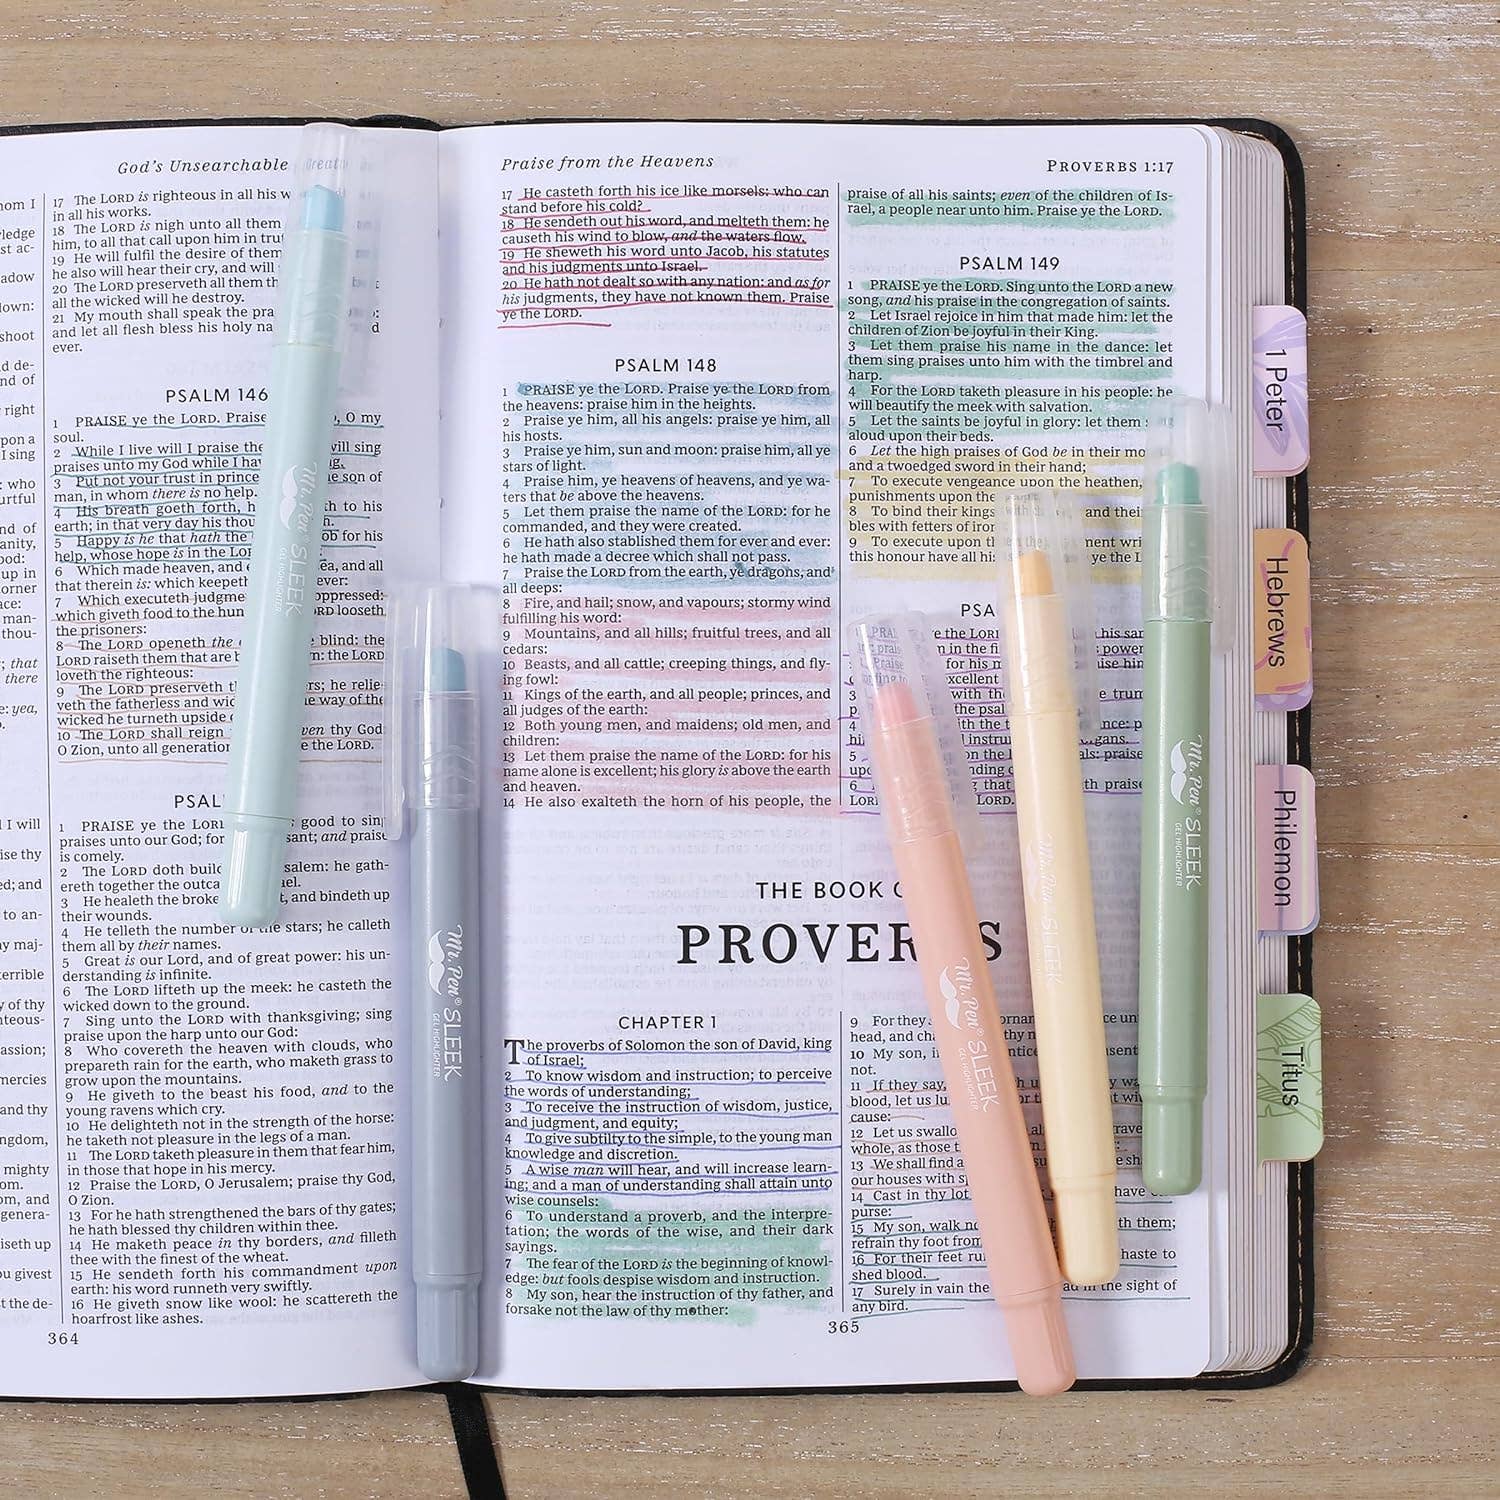 God's Unsearchable Great
17 The LORD is righteous in all his w
in all his works.
18 The LORD is nigh unto all them
him, to all that call upon him in tru
19 He will fulfil the desire of them
he also will hear their cry, and will
20 The LORD preserveth all them th
all the wicked will he destroy.
21 My mouth shall speak the pra
and let all flesh bless his holy na
ever.
PSALM 146
1 PRAISE ye the LORD. Praise , O my
soul.
2 While I live will I praise the will sing
praises unto my God while I hav
3 Put not your trust in prince son of
man, in whom there is no help.
4 His breath goeth forth, h to his
earth; in that very day his thou
5 Happy is he that hath the ob for his
help, whose hope is in the LOR
6 Which made heaven, and e ea, and all
that therein is: which keepeth ever:
7 Which executeth judgme oppressed:
which giveth food to the hun LORD looseth
the prisoners:
8 The LORD openeth the blind: the
LORD raiseth them that are b n: the LORD
loveth the righteous:
9 The LORD preserveth th rs; he relie-
veth the fatherless and wid the way of the
wicked he turneth upside d
10 The LORD shall reign even thy God,
O Zion, unto all generation e the LORD.
PSAL
1 PRAISE ye the LOR good to sing
praises unto our God; for sant; and praise
is comely.
2 The LORD doth build salem: he gath-
ereth together the outca el.
3 He healeth the broke , and bindeth up
their wounds.
4 He telleth the number of the stars; he calleth
them all by their names.
5 Great is our Lord, and of great power: his un-
derstanding is infinite.
6 The LORD lifteth up the meek: he casteth the
wicked down to the ground.
7 Sing unto the LORD with thanksgiving; sing
praise upon the harp unto our God:
8 Who covereth the heaven with clouds, who
prepareth rain for the earth, who maketh grass to
grow upon the mountains.
9 He giveth to the beast his food, and to the
young ravens which cry.
10 He delighteth not in the strength of the horse:
he taketh not pleasure in the legs of a man.
11 The LORD taketh pleasure in them that fear him,
in those that hope in his mercy.
12 Praise the LORD, O Jerusalem; praise thy God,
O Zion.
13 For he hath strengthened the bars of thy gates;
he hath blessed thy children within thee.
14 He maketh peace in thy borders, and filleth
thee with the finest of the wheat.
15 He sendeth forth his commandment upon
earth: his word runneth very swiftly.
16 He giveth snow like wool: he scattereth the
hoarfrost like ashes.
364
Praise from the Heavens
PROVERBS 1:17
17 He casteth forth his ice like morsels: who can
stand before his cold?
18 He sendeth out his word, and melteth them: he
causeth his wind to blow, and the waters flow.
19 He sheweth his word unto Jacob, his statutes
and his judgments unto Israel.
20 He hath not dealt so with any nation: and as for
his judgments, they have not known them. Praise
ye the LORD.
PSALM 148
1 PRAISE ye the LORD. Praise ye the LORD from
the heavens: praise him in the heights.
2 Praise ye him, all his angels: praise ye him, all
his hosts.
3 Praise ye him, sun and moon: praise him, all ye
stars of light.
4 Praise him, ye heavens of heavens, and ye wa-
ters that be above the heavens.
5 Let them praise the name of the LORD: for he
commanded, and they were created.
6 He hath also stablished them for ever and ever:
he hath made a decree which shall not pass.
7 Praise the LORD from the earth, ye dragons, and
all deeps:
8 Fire, and hail; snow, and vapours; stormy wind
fulfilling his word:
9 Mountains, and all hills; fruitful trees, and all
cedars:
10 Beasts, and all cattle; creeping things, and fly-
ing fowl:
11 Kings of the earth, and all people; princes, and
all judges of the earth:
12 Both young men, and maidens; old men, and
children:
13 Let them praise the name of the LORD: for his
name alone is excellent; his glory is above the earth
and heaven.
14 He also exalteth the horn of his people, the
praise of all his saints; even of the children of Is-
rael, a people near unto him. Praise ye the LORD.
PSALM 149
1 PRAISE ye the LORD. Sing unto the LORD a new
song, and his praise in the congregation of saints.
2 Let Israel rejoice in him that made him: let the
children of Zion be joyful in their King.
3 Let them praise his name in the dance: let
them sing praises unto him with the timbrel and
harp.
4 For the LORD taketh pleasure in his people: he
will beautify the meek with salvation.
5 Let the saints be joyful in glory: let them
aloud upon their beds.
6 Let the high praises of God be in their mo
and a twoedged sword in their hand;
7 To execute vengeance upon the heathen,
punishments upon the
8 To bind their kings and their
bles with fetters of iron
9 To execute upon th ment writ
this honour have all hi ye the L
PSA
THE BOOK O
PROVERBS
CHAPTER 1
The proverbs of Solomon the son of David, king
of Israel;
2 To know wisdom and instruction; to perceive
the words of understanding;
3 To receive the instruction of wisdom, justice,
and judgment, and equity;
4 To give subtilty to the simple, to the young man
knowledge and discretion.
5 A wise man will hear, and will increase learn-
ing; and a man of understanding shall attain unto
wise counsels:
6 To understand a proverb, and the interpre-
tation; the words of the wise, and their dark
sayings.
7 The fear of the LORD is the beginning of knowl-
edge: but fools despise wisdom and instruction.
8 My son, hear the instruction of thy father, and
forsake not the law of thy mother:
9 For they
head, and cha
10 My son, i
not.
11 If they say,
blood, let us lu
cause:
12 Let us swallo
whole, as those t
13 We shall find a
our houses with sp
14 Cast in thy lot
purse:
15 My son, walk no them;
refrain thy foot from
16 For their feet ru haste to
shed blood.
17 Surely in vain the in the sight of
any bird.
365
1 Peter
Hebrews
Philemon
Titus
Mr. Pen® SLEEK
GEL HIGHLIGHTER
Mr. Pen® SLEEK
GEL HIGHLIGHTER
Mr. Pen® SLEEK
GEL HIGHLIGHTER
Mr. Pen® SLEEK
Mr. Pen® SLEEK
GEL HIGHLIGHTER